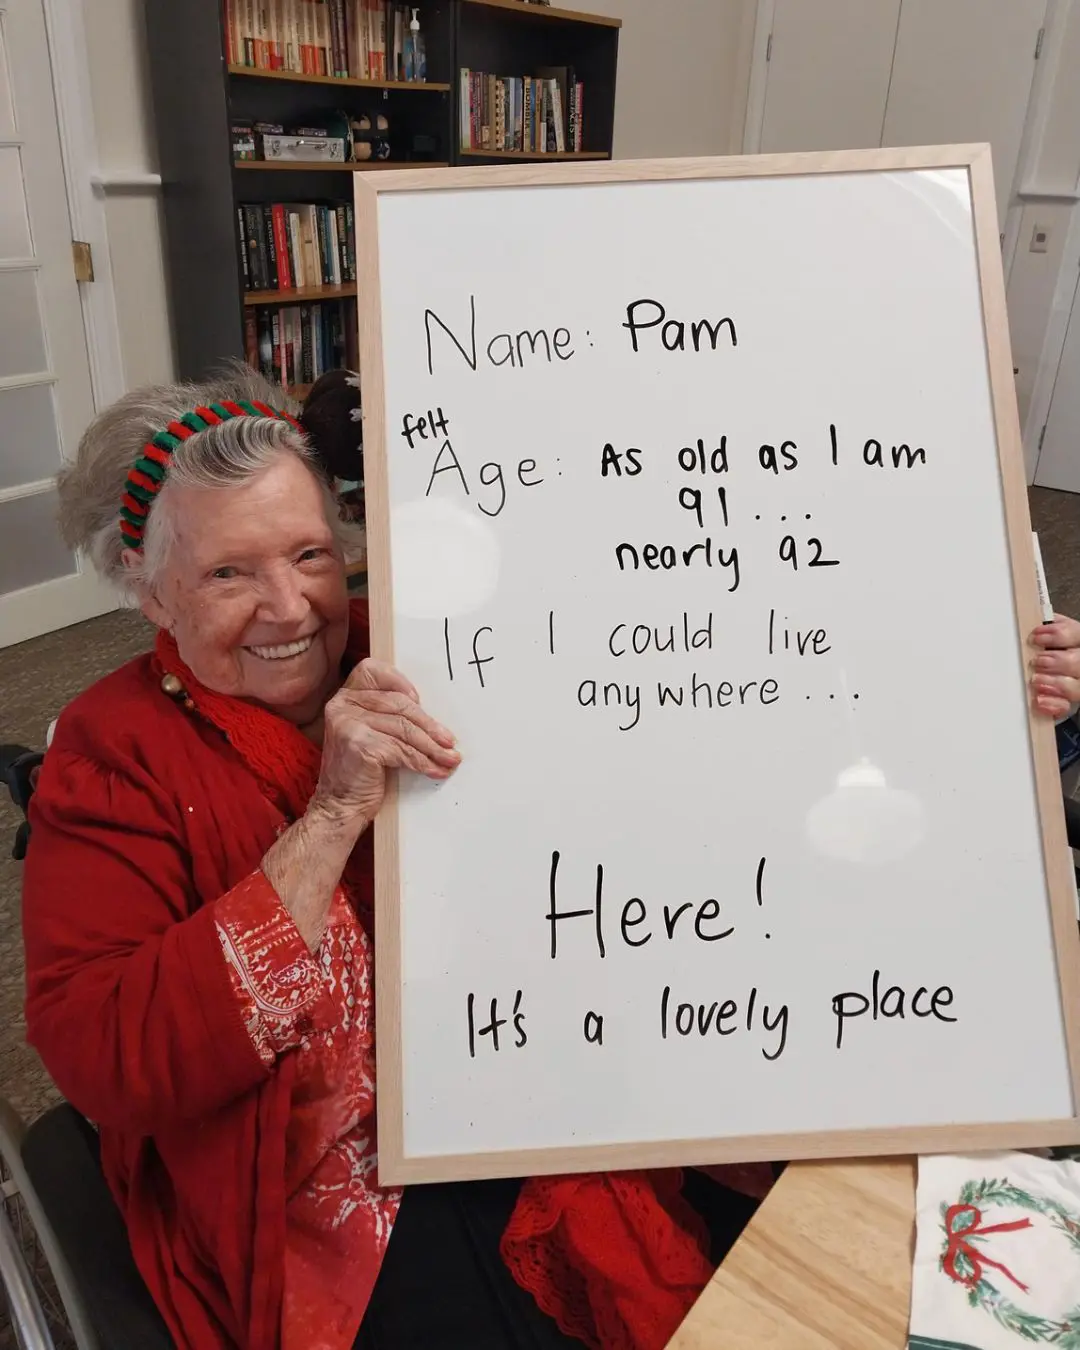 Name: Pam
felt
Age: As old as I am
91...
nearly 92
If I could live
anywhere...
Here!
It's a lovely place